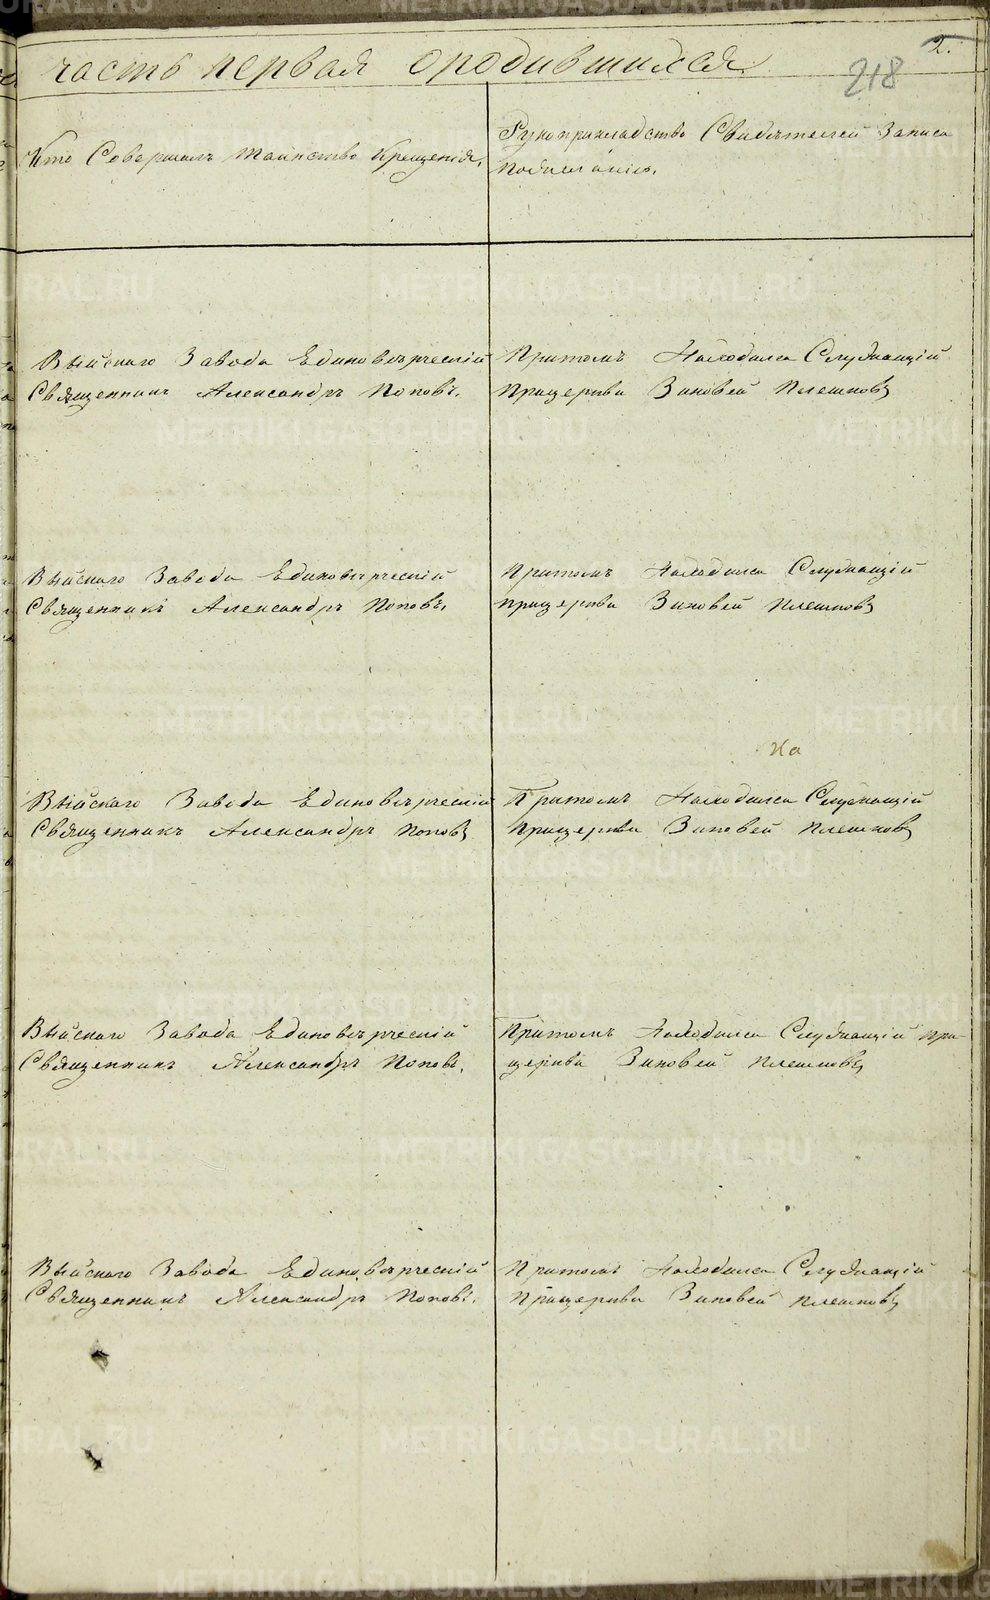 2.
218
часть первая ородившихся
Кто Совершалъ таинство Крещенія.
Рукоприкладство Свидѣтелей Записа
по желанію.
Выйскаго Завода Единовѣрческій
Священникъ Александръ Поповъ.
Притомъ Находился Служащій
прицеркви Зиновей Плешковъ
Выйскаго Завода Единовѣрческій
Священникъ Александръ Поповъ.
Притомъ Находился Служащій
прицеркви Зиновей Плешковъ
Ка
Выйскаго Завода Единовѣрческій
Священникъ Александръ Поповъ
Притомъ Находился Служащій
прицеркви Зиновей Плешковъ
Выйскаго Завода Единовѣрческій
Священникъ Александръ Поповъ.
Притомъ Находился Служащій при
церкви Зиновей Плешковъ
Выйскаго Завода Единовѣрческій
Священникъ Александръ Поповъ.
Притомъ Находился Служащій
Прицеркви Зиновей Плешковъ
METRIKI.GASO-URAL.RU